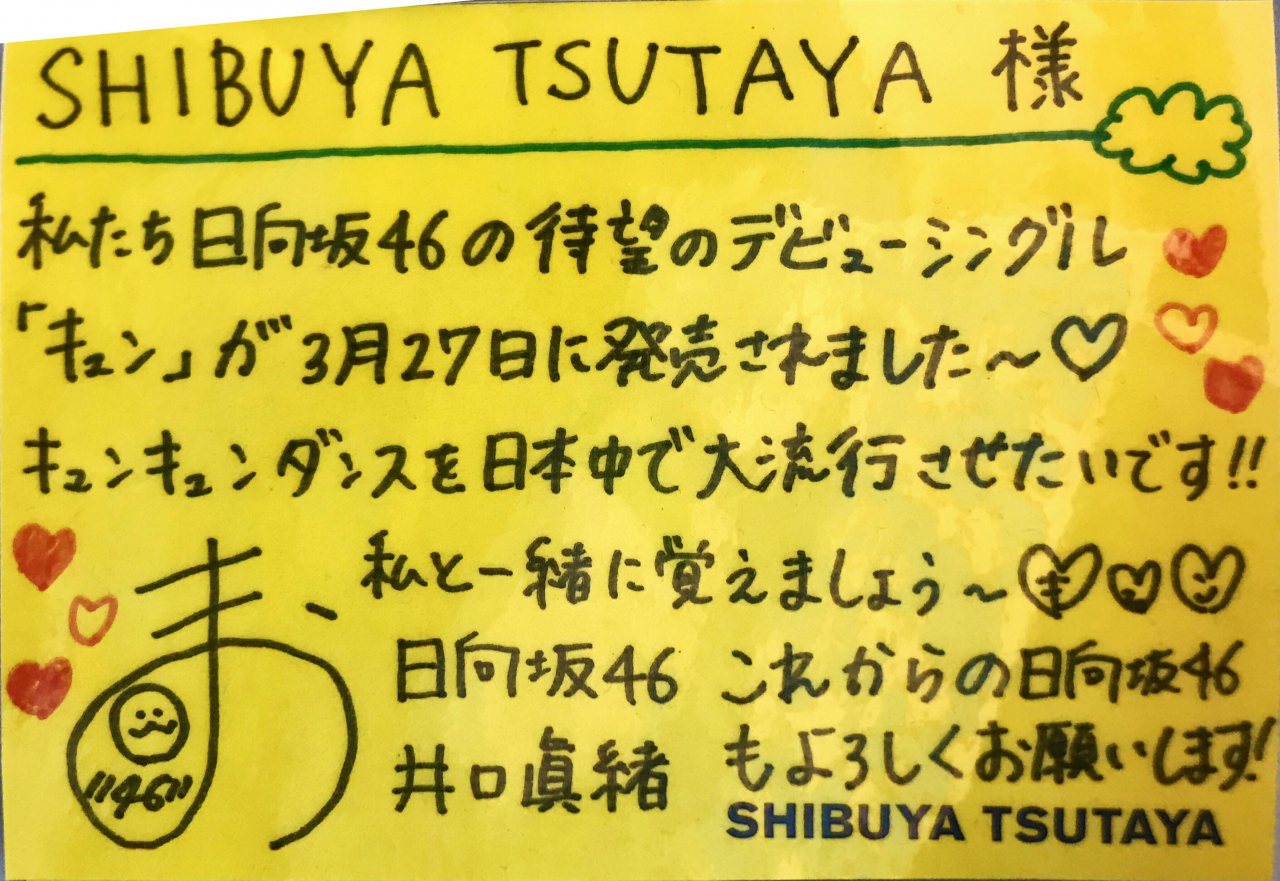 SHIBUYA TSUTAYA 様
私たち日向坂46の待望のデビューシングル
「キュン」が3月27日に発売されました～♡
キュンキュンダンスを日本中で大流行させたいです!!
私と一緒に覚えましょう～
日向坂46 これからの日向坂46
井口眞緒 もよろしくお願いします!
"46"
SHIBUYA TSUTAYA